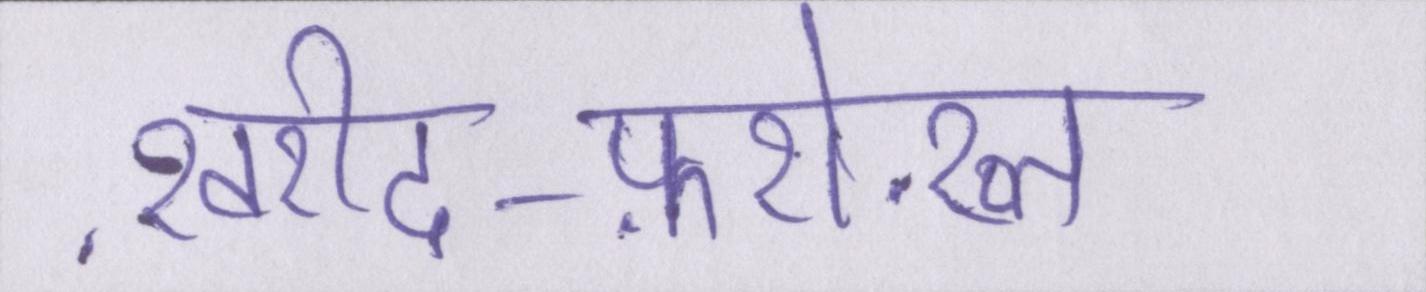 ख़रीद-फ़रोख़्त